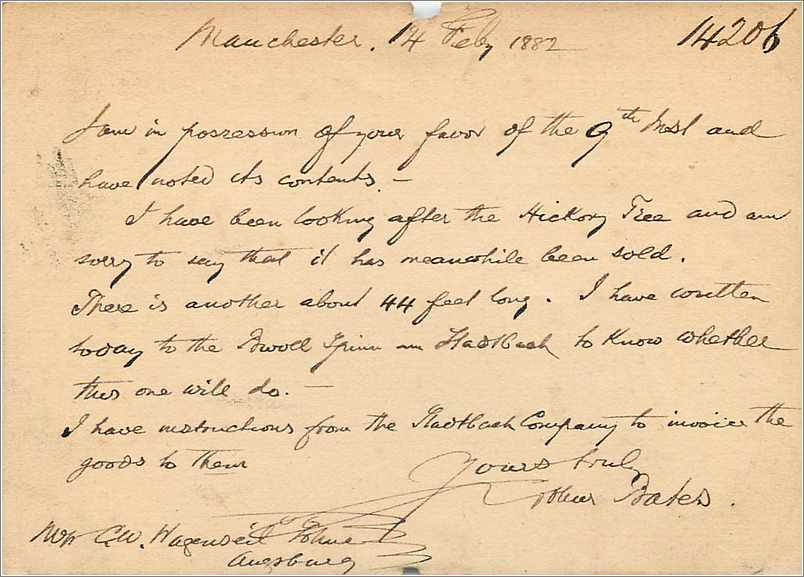 Manchester. 14 Feby 1882 14206
I am in possession of your favor of the 9th Inst and
have noted its contents. –
I have been looking after the Hickory Tree and am
sorry to say that it has meanwhile been sold.
There is another about 44 feet long. I have written
today to the in to know whether
this one will do. –
I have instructions from the Company to invoice the
goods to them
Yours truly
Arthur Bates.
C.W.
Augsburg